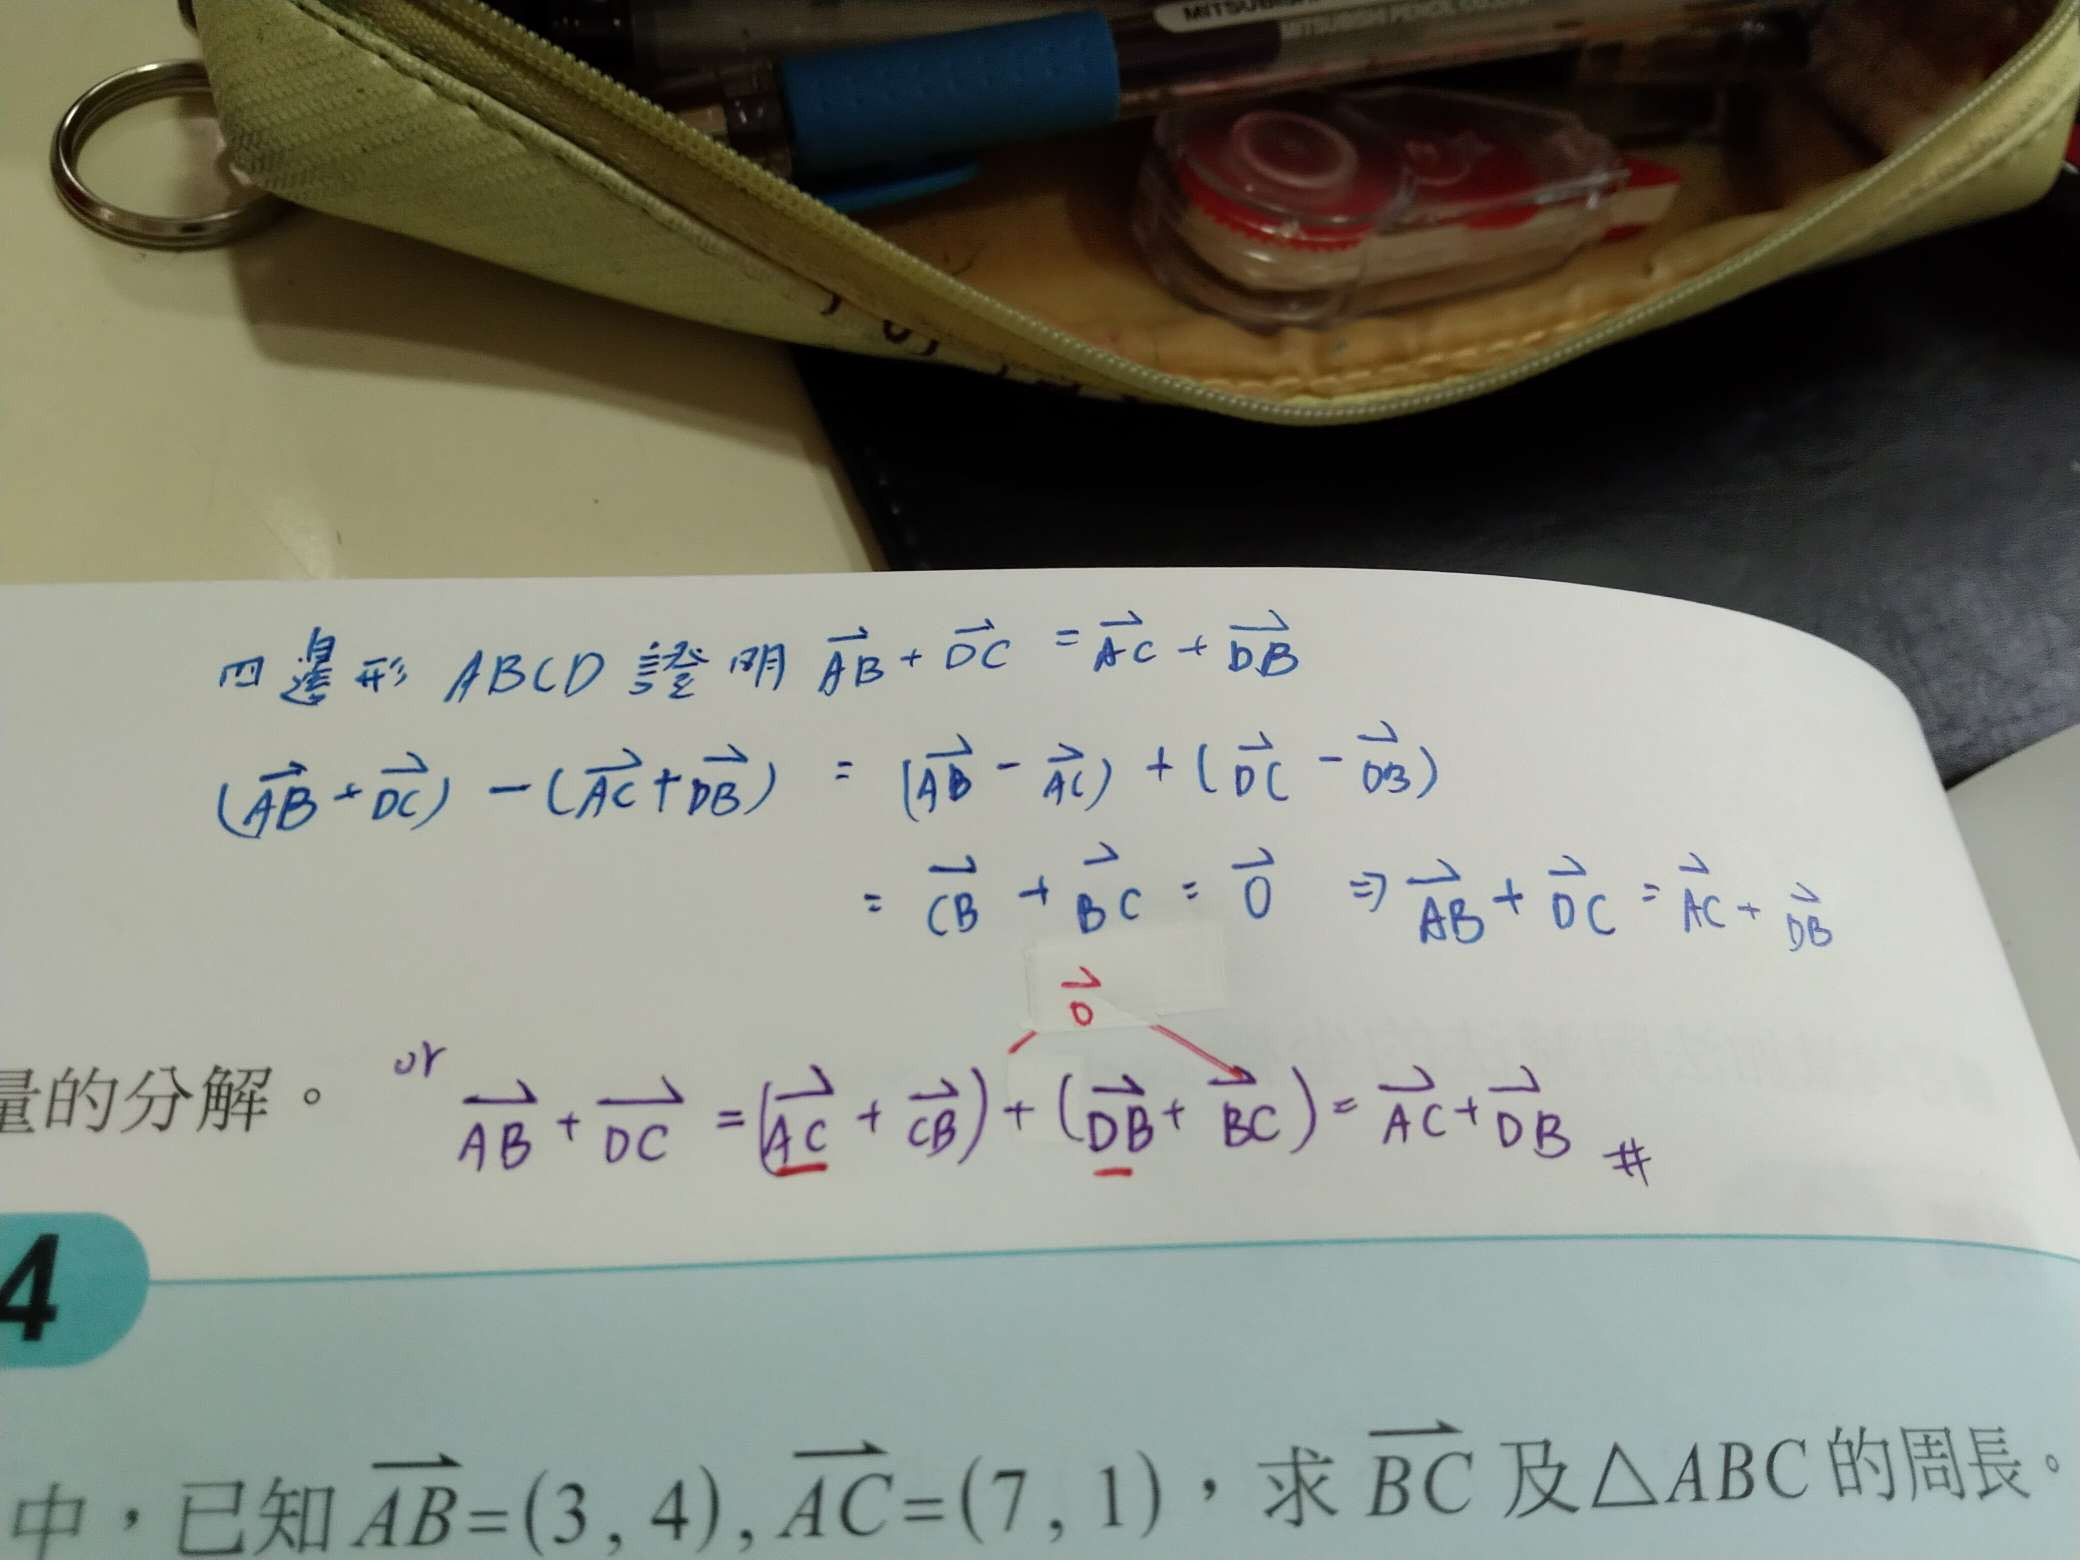 MITSUBISHI PENCIL CO.
四邊形 ABCD 證明 \vec{AB} + \vec{DC} = \vec{AC} + \vec{DB}
(\vec{AB} + \vec{DC}) - (\vec{AC} + \vec{DB}) = (\vec{AB} - \vec{AC}) + (\vec{DC} - \vec{DB})
= \vec{CB} + \vec{BC} = \vec{0} ⇒ \vec{AB} + \vec{DC} = \vec{AC} + \vec{DB}
\vec{0}
量的分解。 or \vec{AB} + \vec{DC} = (\vec{AC} + \vec{CB}) + (\vec{DB} + \vec{BC}) = \vec{AC} + \vec{DB} #
4
中，已知 \vec{AB} = (3, 4), \vec{AC} = (7, 1)，求 \vec{BC} 及 △ABC 的周長。